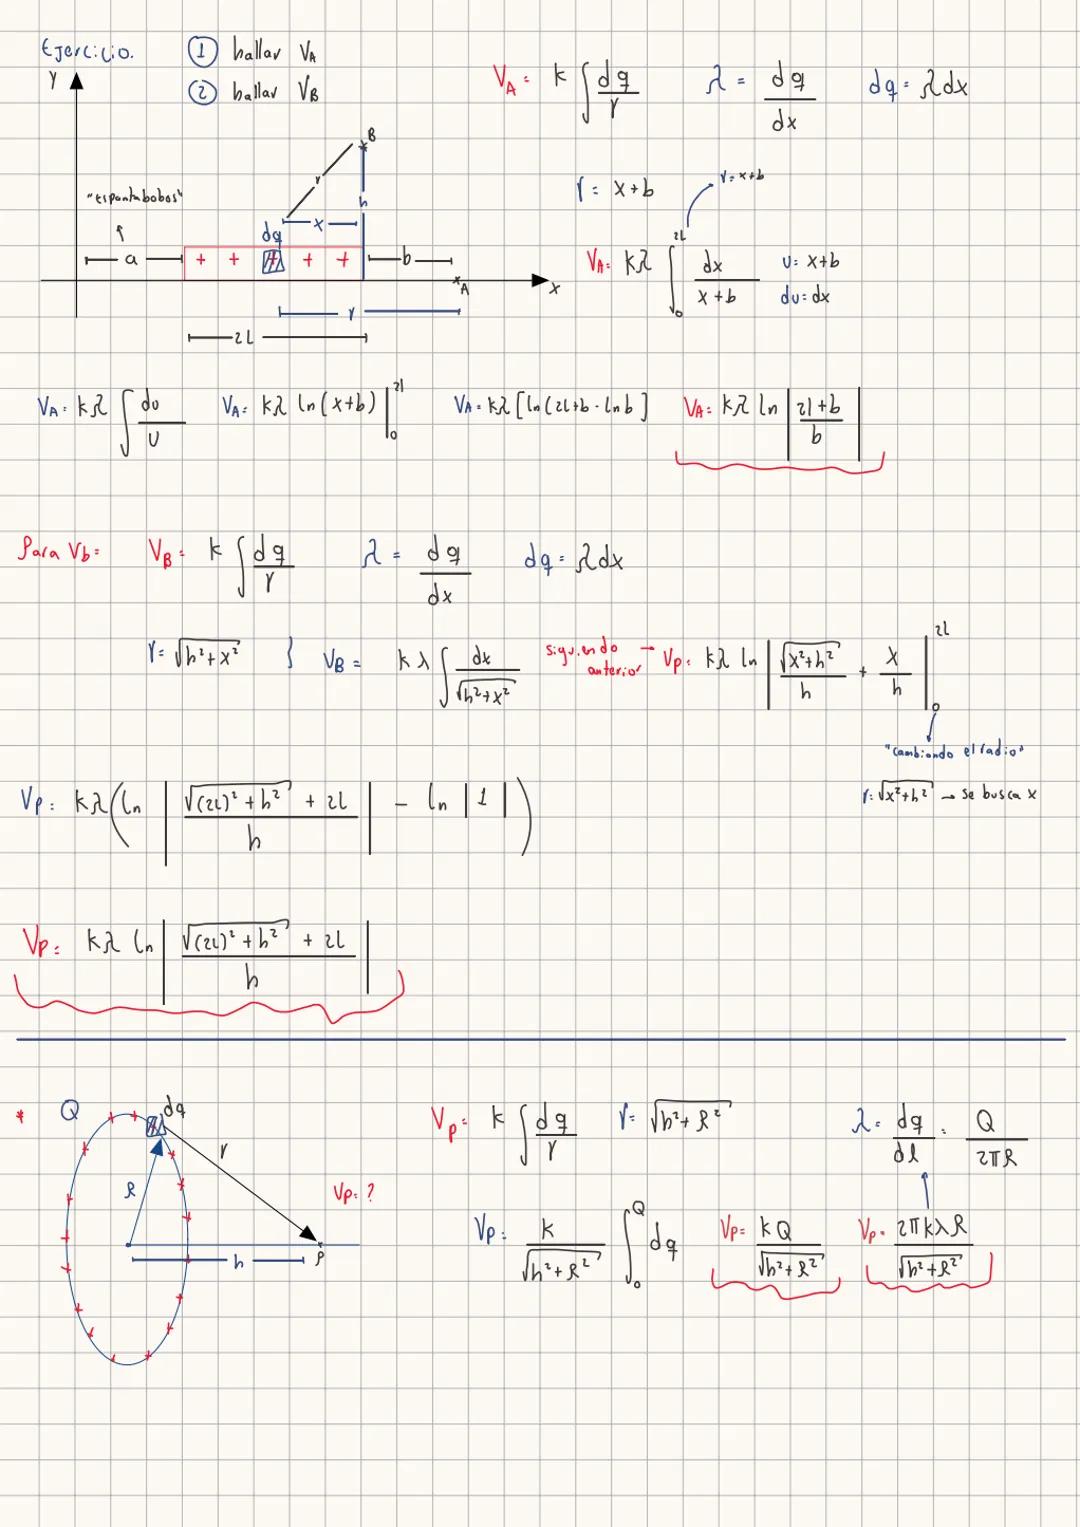 Ejercicio.
① hallar V_A
② hallar V_B
Y
B
r
h
"espantabobos"
x
dq
a
+ + + + +
b
A
x
r
2L
V_A = k ∫ dq/r
λ = dq/dx
dq = λdx
r = x+b
r = x+b
V_A = kλ ∫_0^{2L} dx/(x+b)
u = x+b
du = dx
V_A = kλ ∫ du/u
V_A = kλ ln(x+b) |_0^{2l}
V_A = kλ [ln(2l+b - lnb]
V_A = kλ ln |(2l+b)/b|
Para Vb =
V_B = k ∫ dq/r
λ = dq/dx
dq = λdx
r = √(h²+x²) }
V_B = kλ ∫ dx/√(h²+x²)
siguiendo anterior → Vp = kλ ln |√(x²+h²)/h + x/h|_0^{2L}
"cambiando el radio"
r = √(x²+h²) → se busca x
Vp = kλ(ln |(√((2L)²+h²) + 2L)/h| - ln |1|)
Vp = kλ ln |(√((2L)²+h²) + 2L)/h|
*
Q
dq
r
R
Vp = ?
h
P
Vp = k ∫ dq/r
r = √(h²+R²)
λ = dq/dl = Q/2πR
Vp = k/√(h²+R²) ∫_0^Q dq
Vp = kQ/√(h²+R²)
Vp = 2πkλR/√(h²+R²)